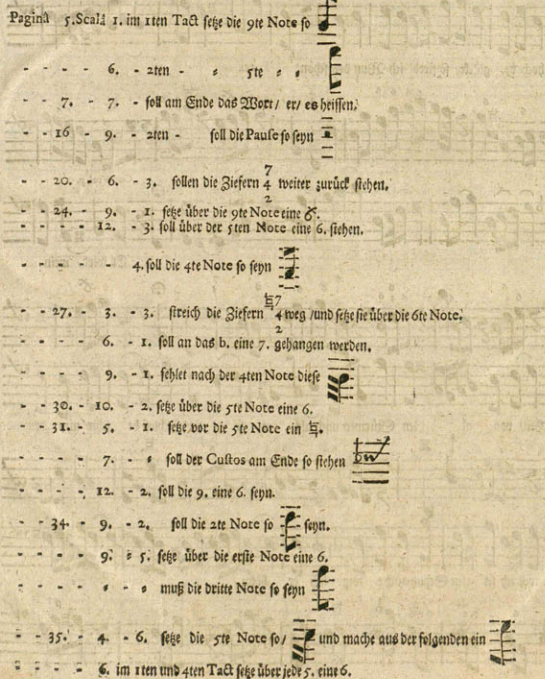 Paginâ 5. Scalâ 1. im 1ten Tact setze die 9te Note so
- - - - 6. - 2ten - = 5te = =
- - 7. - 7. - soll am Ende das Wort / er / es heissen.
- - 16 - 9. - 2ten - soll die Pause so seyn
- - 20. - 6. - 3. sollen die Ziefern 7 4 2 weiter zurück stehen.
- - 24. - 9. - 1. setze über die 9te Note eine 6.
- - - - 12. - 3. soll über der 5ten Note eine 6. stehen.
- - - - - 4. soll die 4te Note so seyn
- - 27. - 3. - 3. streich die Ziefern ♮7 4 2 weg / und setze sie über die 6te Note.
- - - - 6. - 1. soll an das b. eine 7. gehangen werden.
- - - - 9. - 1. fehlet nach der 4ten Note diese
- - 30. - 10. - 2. setze über die 5te Note eine 6.
- - 31. - 5. - 1. setze vor die 5te Note ein ♮.
- - - - 7. - = soll der Custos am Ende so stehen
- - - - 12. - 2. soll die 9. eine 6. seyn.
- - 34. - 9. - 2. soll die 2te Note so seyn.
- - - - 9. = 5. setze über die erste Note eine 6.
- - - - = - = muß die dritte Note so seyn
- - 35. - 4. - 6. setze die 5te Note so / und mache aus der folgenden ein
- - - - 6. im 1ten und 4ten Tact setze über jede 5. eine 6.